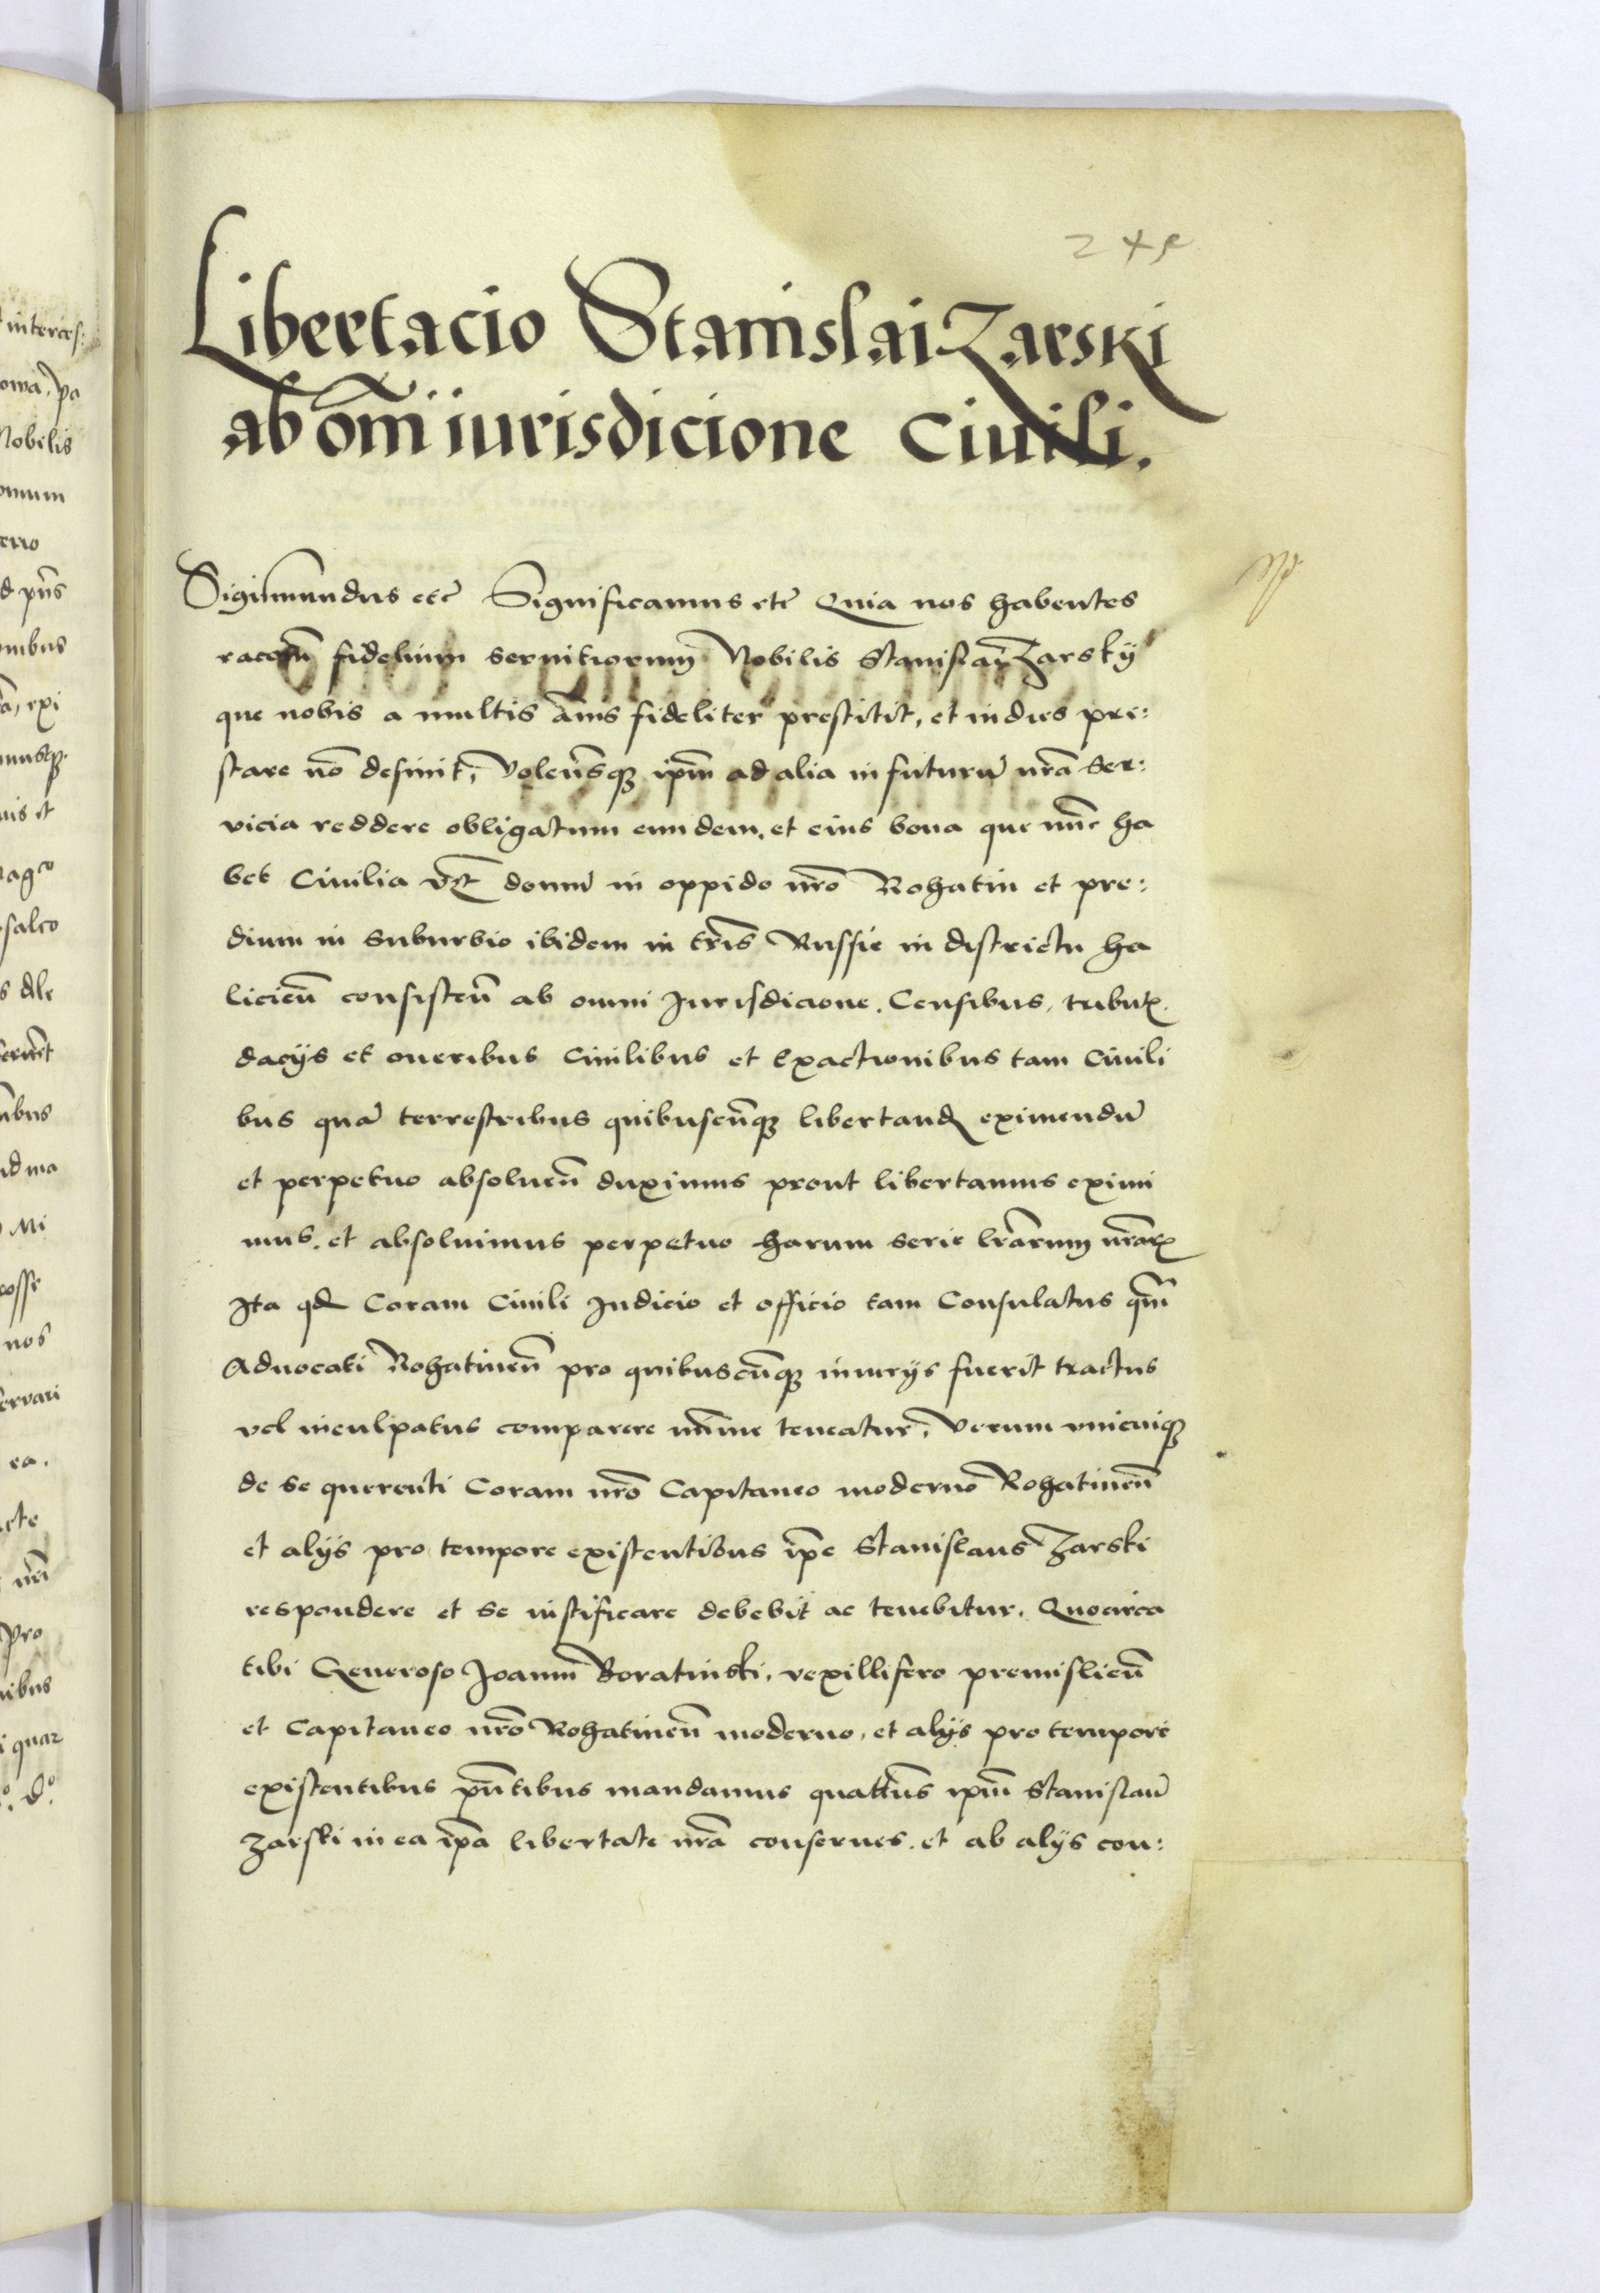 245
Libertacio Stanislai Zarski
ab om̄i iurisdicione Ciuili.
Sigismundus etc̄ Significamus etc̄ Quia nos habentes
racoēm fidelium seruitiorum Nobilis Stanislai Zarskÿ
que nobis a multis ānis fideliter prestitit, et in dies pre:
stare nō desinit, Volen̄sqꝫ ip̄m ad alia in futurū nr̄a Ser:
vicia reddere obligatum eundem, et eius bona que nūnc ha
bet Ciuilia vꝫ domū in oppido nr̄o Rohatin et pre:
dium in Suburbio ibidem in tr̄is Russie in districtu ha
licien̄ consisten̄ ab omni Jurisdicione. Censibus, tributꝭ.
dacijs et oneribus Ciuilibus et Exactionibus tam Ciuili
bus quā terrestribus quibuscūnqꝫ libertand̄ eximendū
et perpetuo absoluen̄ duximus prout libertamus eximi
mus. et absoluimus perpetuo harum serie lr̄arum nr̄arꝝ
Ita qd̄ Coram Ciuili Judicio et officio tam Consulatus qm̄
Aduocati Rohatinen̄ pro quibuscūnqꝫ iniurijs fuerit tractus
vel inculpatus comparere mīnime teneatur, Verum vnicuiqꝫ
de se querenti Coram nr̄o Capitaneo moderno Rohatinen̄
et alijs pro tempore existentibus ip̄e Stanislaus Zarski
respondere et se iustificare debebit ac tenebitur. Quocirca
tibi Generoso Joanni Boratinski, vexillifero premislien̄
et Capitaneo nr̄o Rohatinen̄ moderno, et alijs pro tempore
existentibus pn̄tibus mandamus quatt̄us ip̄m Stanislaū
Zarski in ea ip̄a libertate nr̄a conserues. et ab alijs con: